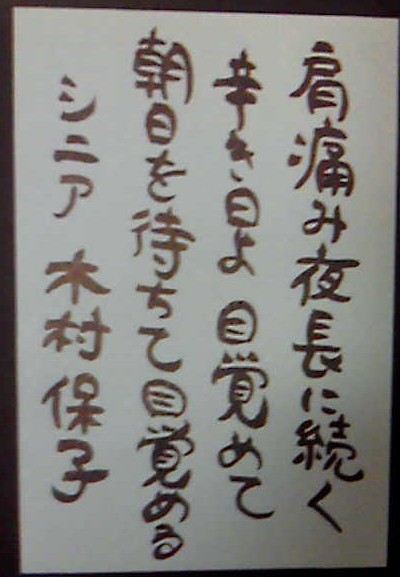 肩痛み夜長に続く
辛き日よ 目覚めて
朝日を待ちて目覚める
シニア 木村保子